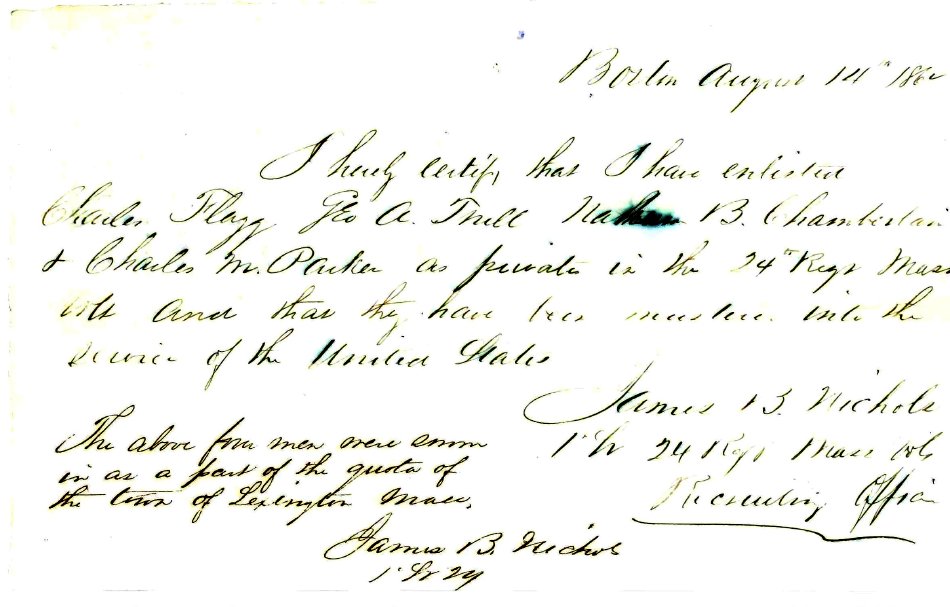 Boston August 14th 1862
I hereby certify that I have enlisted
Charles Flagg Geo A. Nathan B. Chamberlain
& Charles M. Parker as privates in the 24th Regt Mass
Vols and that they have been mustered into the
service of the United States
James B. Nichols
1st Lt 24 Regt Mass Vols
Recruiting Officer
The above four men were sworn
in as a part of the quota of
the town of Lexington Mass.
James B. Nichols
1st Lt 24